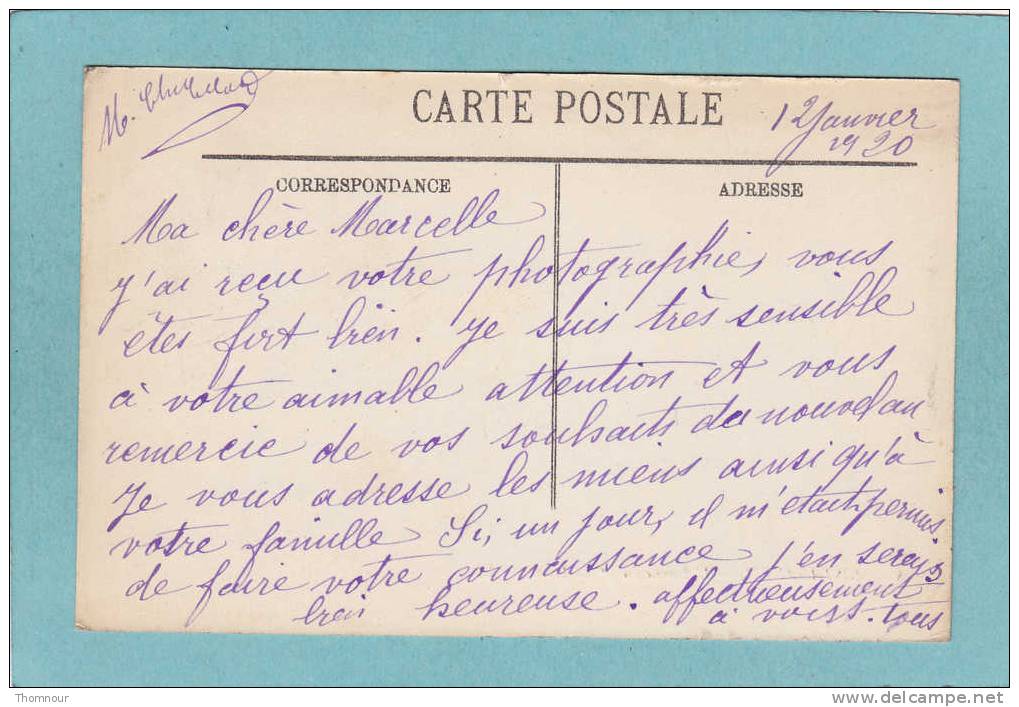 M.
CARTE POSTALE
12 Janvier
1920
CORRESPONDANCE
ADRESSE
Ma chère Marcelle
J'ai reçu votre photographie, vous
êtes fort bien. Je suis très sensible
à votre aimable attention et vous
remercie de vos souhaits du nouvel an
Je vous adresse les miens ainsi qu'à
votre famille Si, un jour, il m'était permis
de faire votre connaissance j'en serais
bien heureuse. affectueusement
à vous. tous
Thomnour
http://www.delcampe.net